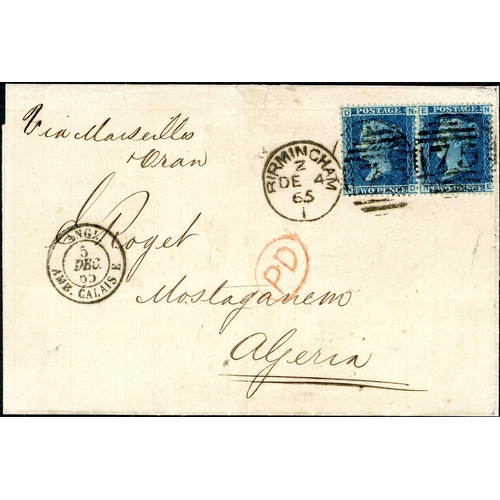 Via Marseilles
& Oran
D POSTAGE N
N TWO PENCE D
E POSTAGE N
N TWO PENCE E
75
BIRMINGHAM
Z
DE 4
65
1
ANGL.
5
DEC.
65
AMB. CALAIS E
Poget
PD
Mostaganem
Algeria